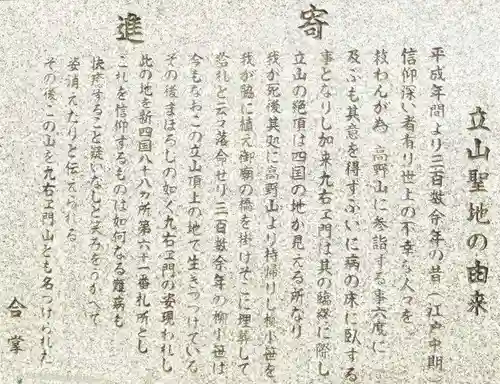 寄進
立山聖地の由来
平成年間より三百数余年の昔(江戸中期
信仰深い者有り世上の不幸な人々を
救わんが為 高野山に参詣する事六度に
及ぶも其意を得ずついに病の床に臥する
事となりし加来九右ヱ門は其の臨終に際し
立山の絶頂は四国の地が見える所なり
我が死後其処に高野山より持帰りし柳小笹を
我が脇に植え御廟の橋を掛けそこに埋葬して
恐れと云々落合せり三百数余年の柳小笹は
今もなおこの立山頂上の地で生きつづけている
その後まぼろしの如く九右ヱ門の姿現われし
此の地を新四国八十八ヶ所第六十一番札所とし
これを信仰するものは如何なる難病も
快癒すること疑いなしと笑みをうかべて
姿消えたりと伝えられる
その後この山を九右ヱ門山とも名づけられた
合掌